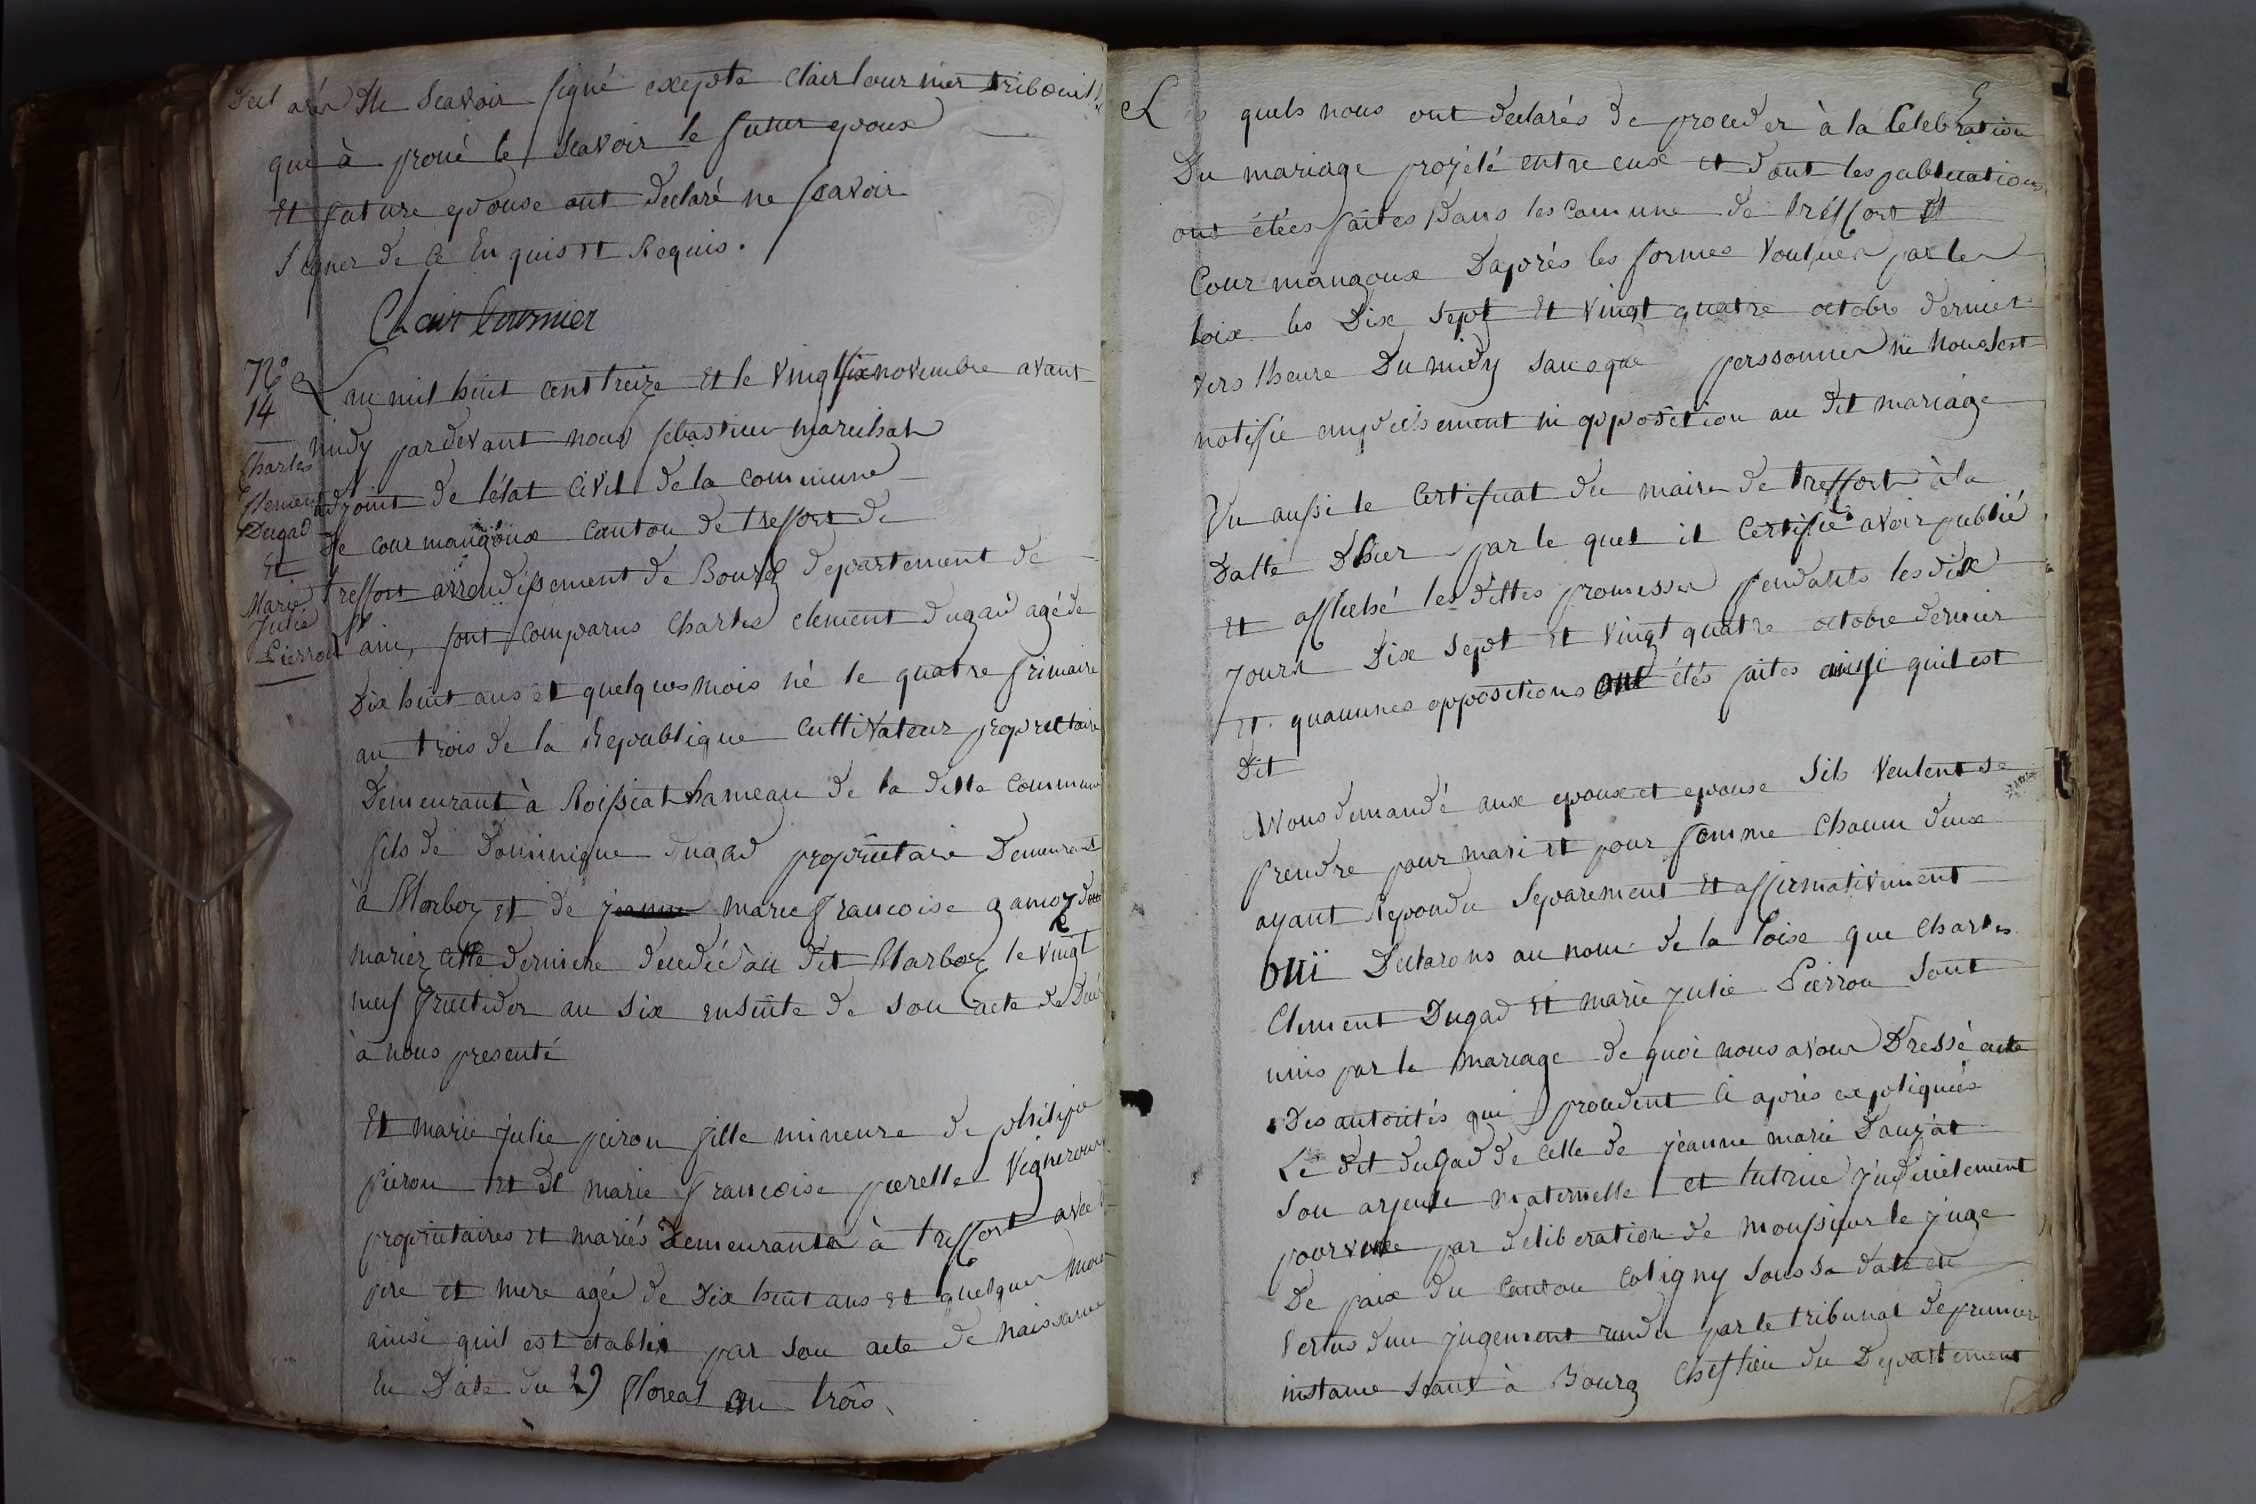 Declaré Ne Scavoir signé exepté Clair fournier
que à prouvé le Scavoir le futur epoux
Et future epouse ont declaré ne scavoir
Signer de ce Enquis et Requis.
Clair fournier
N°
14
Charles
Clement
Dugad
Et
Marie
Julie
Pierron
L'an mil huit cent treize Et le Vingt six novembre avant
midy pardevant nous sébastien maréchal
adjoint de l'état Civil de la commune
de courmangoux canton de treffort de
treffort arrondissement de Bourg departement de
l'ain, sont comparus Charles clement dugad agé de
Dix huit ans et quelques mois né le quatre frimaire
an trois de la Republique Cultivateur propriétaire
Demeurant à Roissiat hameau de la ditte Commune
fils de Dominique dugad propriétaire Demeurant
à Marboz et de jeanne marie francoise gamoz
mariéz cette derniere decedée au dit Marboz le vingt
neuf fructidor an six ensuite de son acte de
à nous presenté
Et marie julie peiron fille mineure de philipe
pieron et de marie francoise perelle Vignerons
propriétaires et mariés Demeurants à treffort avec
pere et mere agée de Dix huit ans et quelques mois
ainsi quil est etablit par son acte de naissance
En Date du 29 floreal an trois.
Les quels nous ont déclarés de proceder à la Celebration
Du mariage projété entre eux et dont les publications
ont étées faites Dans les comune de tréffort Et
Courmangoux D'aprés les formes voulues par les
loix les Dix sept Et vingt quatre octobre dernier
vers lheure Du midy sans que perssonnes ne nous est
notifié empéchement ni opposition au dit mariage
Vu aussi le Certificat du maire de treffort à la
Datte Dhier par le quel il Certifie avoir publié
Et affiché les dittes promesses pendants les dix
Jours Dix Sept et vingt quatre octobre dernier
Et quaucunes oppositions ont étés faites ainsi quil est
Dit
Avons demandé aux epoux et epouse Sils veulent se
prendre pour mari et pour femme Chacun deux
ayant Repondu Séparement Et affirmativement
Oui Declarons au nom de la loix que Charles
Clement Dugad Et marie julie Pierron Sont
unis par le mariage de quoi nous avons Dressé acte
Des autorités qui procedent ci aprés expliquées
Le dit dugad de celle de jeanne marie Dauzat
Son ayeule maternelle et tutrice judicielement
pourvue par deliberation de monssieur le juge
De paix du Canton Coligny sous sa date en
Vertus dun jugement rendu par le tribunal de premier
instance séant à Bourg Cheflieu du Departement